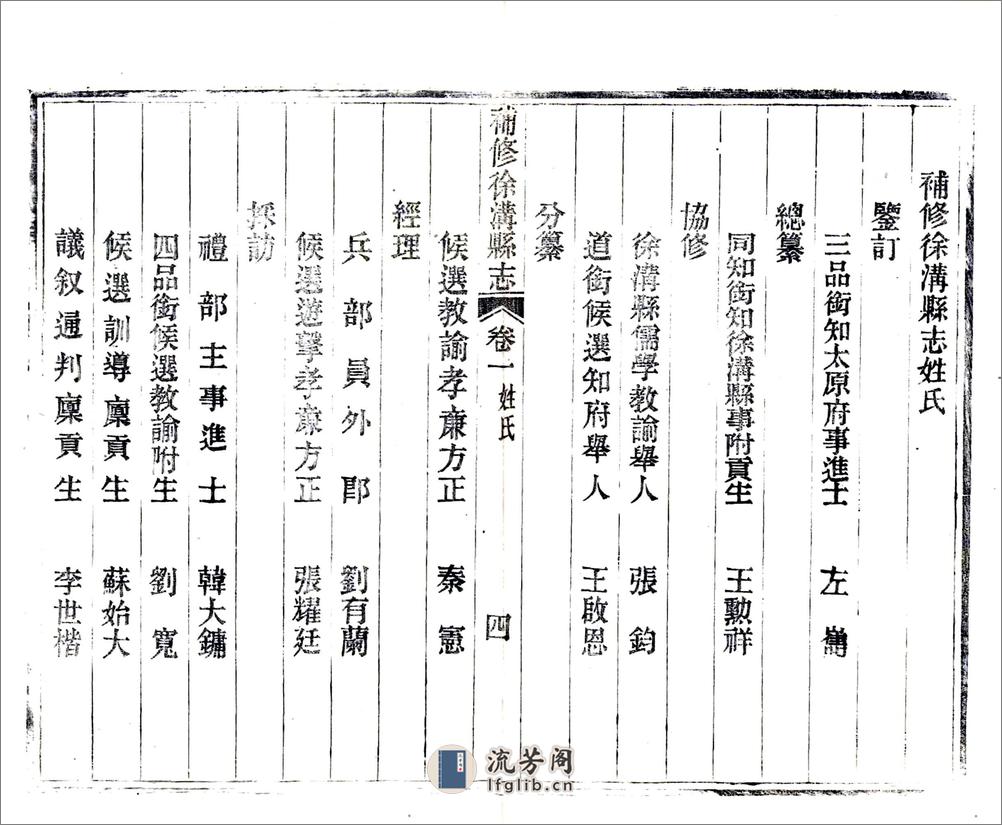 補修徐溝縣志姓氏
鑒訂
三品銜知太原府事進士 左 雋
總纂
同知銜知徐溝縣事附貢生 王勳祥
協修
徐溝縣儒學教諭舉人 張 鈞
道銜候選知府舉人 王啟恩
分纂
補修徐溝縣志 卷一 姓氏 四
候選教諭孝亷方正 秦 憲
經理
兵部員外郎 劉有蘭
候選遊擊孝亷方正 張耀廷
採訪
禮部主事進士 韓大鏞
四品銜候選教諭附生 劉 寬
候選訓導廩貢生 蘇始大
議叙通判廩貢生 李世楷
流芳阁
lfglib.cn